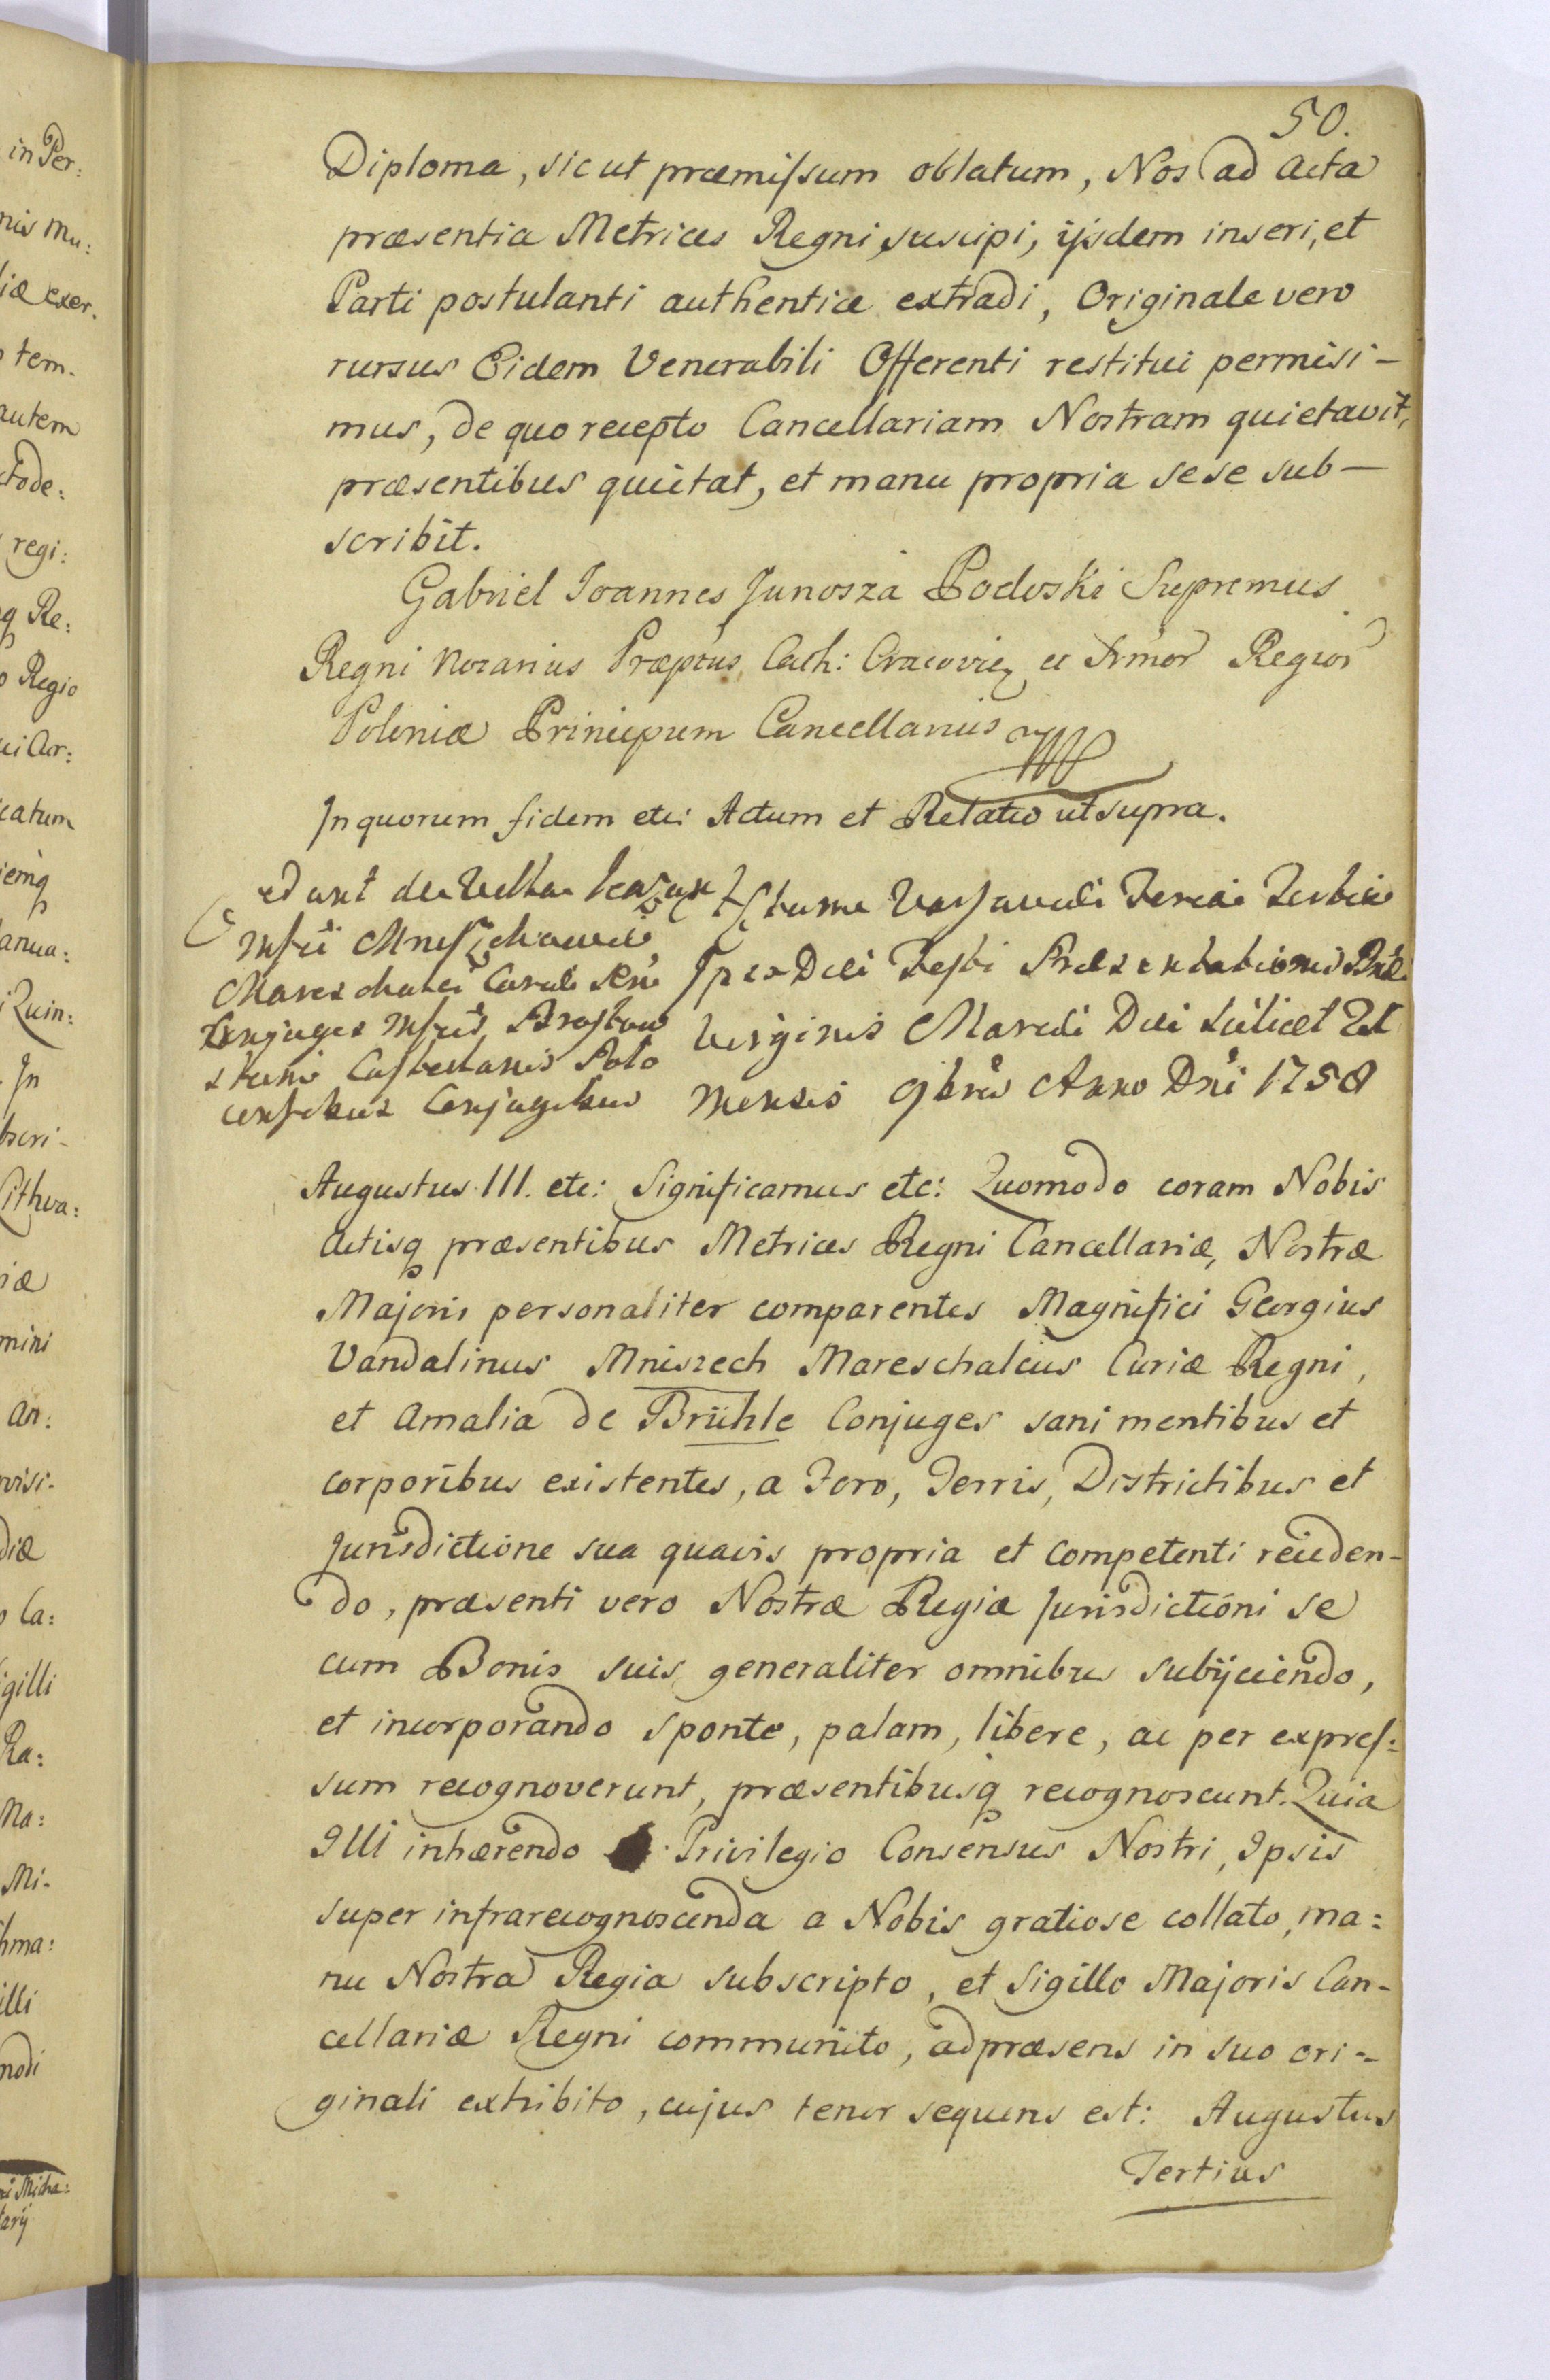 50.
Diploma, sicut præmissum oblatum, Nos ad Acta
præsentia Metrices Regni, suscipi, ijsdem inseri, et
Parti postulanti authentice extradi, Originale vero
rursus Eidem Venerabili Offerenti restitui permisi-
mus, de quo recepto Cancellariam Nostram quietavit,
præsentibus quietat, et manu propria sese sub-
scribit.
Gabriel Joannes Junosza Podoski Supremus
Regni Notarius Præptus Cath: Cracovie et Regior
Poloniæ Principum Cancellarius
In quorum fidem etc: Actum et Relatio ut supra.
Actum Varsaviæ Feria Tertia
Ipso Die Festi Præsentationis
Virginis Mariæ Die scilicet 21
Mensis 9bris Anno Dni 1758
Mareschalci Curiæ Rni
Conjuges
Conjugibus
Augustus III. etc: Significamus etc: Quomodo coram Nobis
Actisq præsentibus Metrices Regni Cancellariæ, Nostræ
Majoris personaliter comparentes Magnifici Georgius
Vandalinus Mniszech Mareschalcus Curiæ Regni,
et Amalia de Brühle Conjuges sani mentibus et
corporibus existentes, a Foro, Terris, Districtibus et
Jurisdictione sua quavis propria et competenti receden-
do, præsenti vero Nostræ Regiæ Jurisdictioni se
cum Bonis suis generaliter omnibus subijciendo,
et incorporando sponte, palam, libere, ac per expres:
sum recognoverunt, præsentibusq recognoscunt. Quia
Illi inhærendo Privilegio Consensus Nostri, Ipsis
super infrarecognoscenda a Nobis gratiose collato, ma:
nu Nostra Regia subscripto, et Sigillo Majoris Can-
cellariæ Regni communito, ad præsens in suo ori-
ginali exhibito, cujus tenor sequens est: Augustus
Tertius